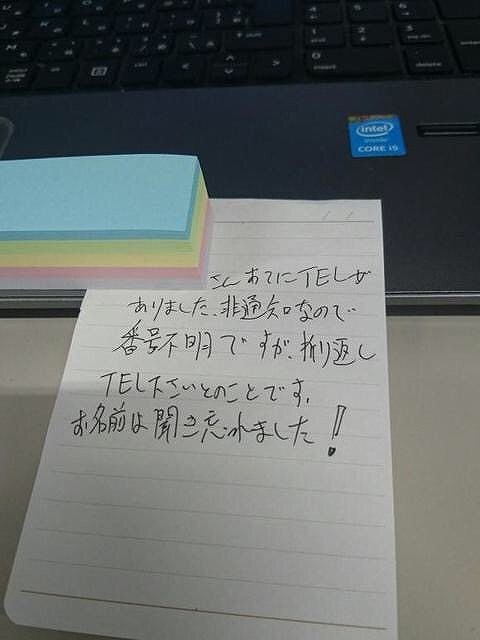 intel
inside
CORE i5
insert
delete
さん あてにTELが
ありました、非通知なので
番号不明ですが、折り返し
TEL下さいとのことです。
お名前は聞き忘れました!